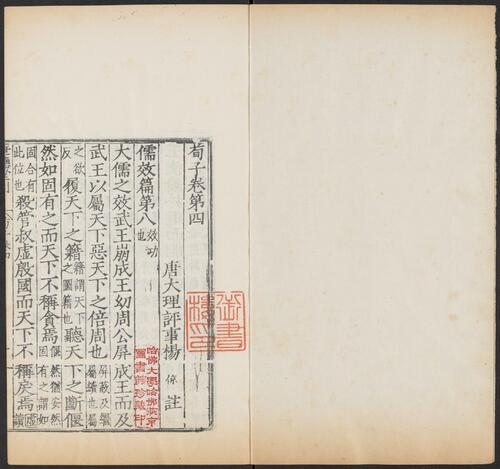 荀子卷第四
唐大理評事楊 倞 註
儒效篇第八 效功也
大儒之效武王崩成王幼周公屏成王而及
武王以屬天下惡天下之倍周也 屏蔽及繼屬續也
之欲反 履天下之籍 籍謂天下之圖籍也 聽天下之斷偃
然如固有之而天下不稱貪焉 偃然猶安然固有之謂如
固合有此位也 殺管叔虛殷國而天下不稱戾焉 虛讀
御書樓印
哈佛大學哈佛燕京圖書館珍藏印